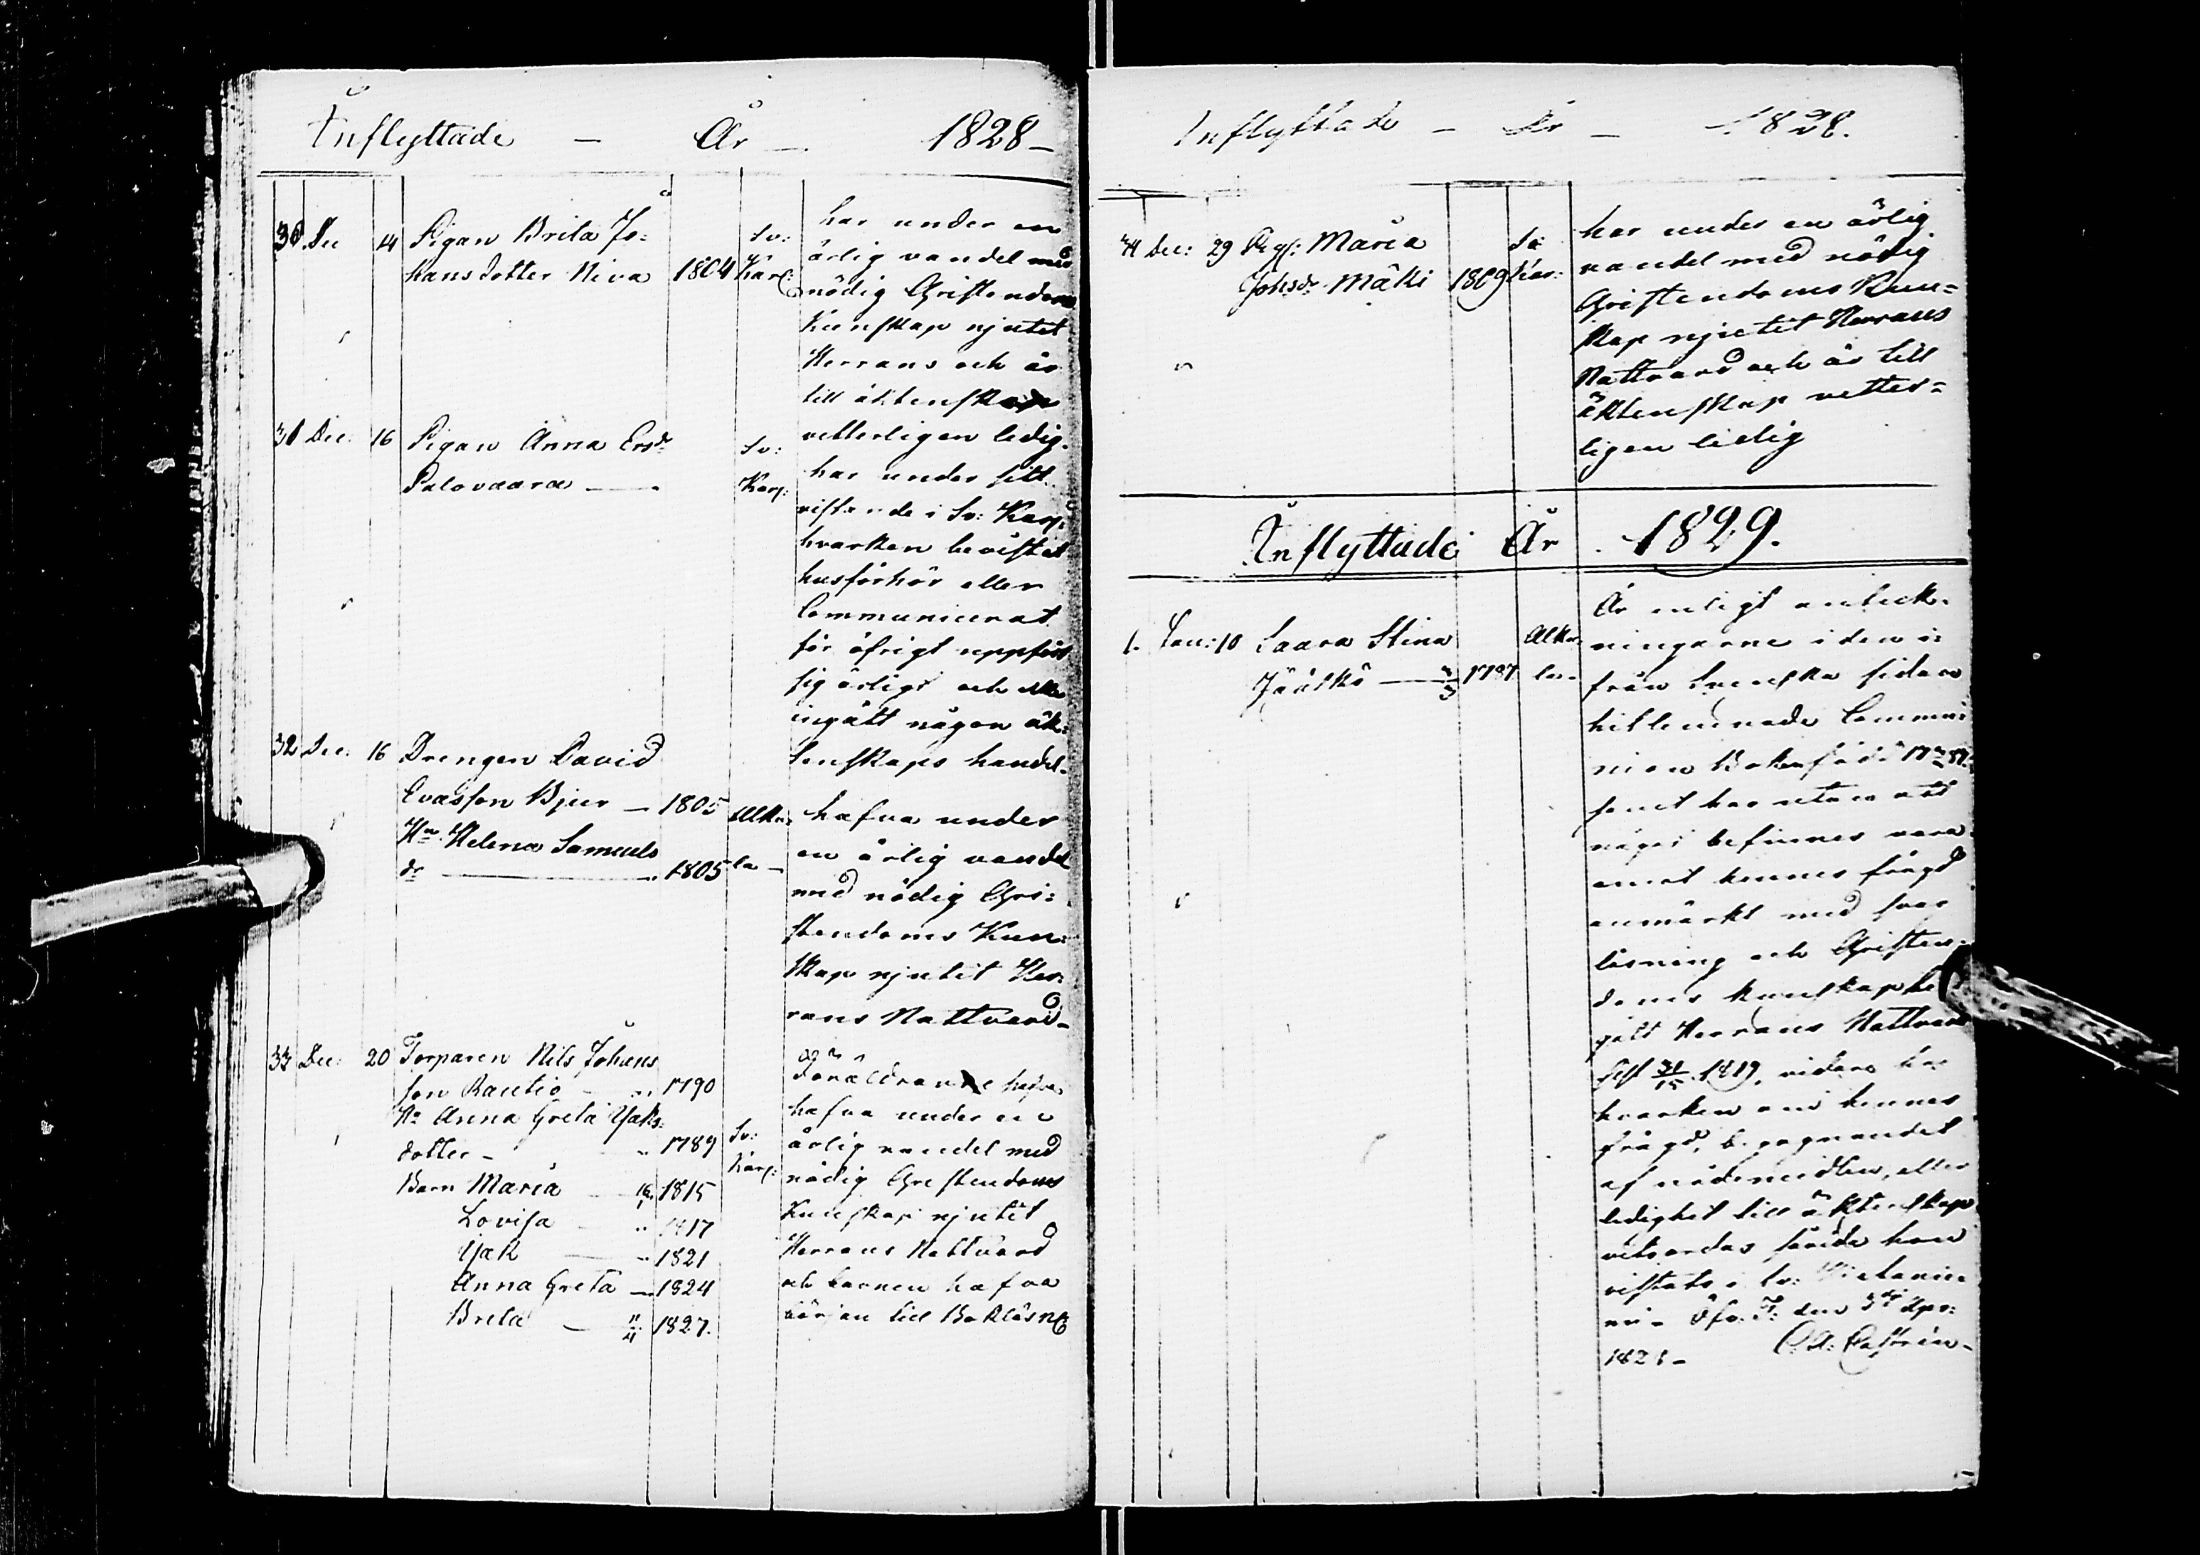 Inflyttade — År — 1828 —
30 Dec 14 Pigan Brita Jo=
hansdotter Niva 1804 Sv: Karl:
har under en
ärlig vandel med
nödig Christendoms
Kunskap njutet
Herrans och är
till äktenskap
vetterligen ledig.
31 Dec: 16 Pigan Anna Ersdr
Palovaara — Sv: Karl:
har under sitt
vistande i Sv: Karl:
hvarken bevistat
husförhör eller
Communicerat
för öfrigt uppfört
sig ärligt och
ingått någon äk=
tenskaps handel.
32 Dec: 16 Drengen David
Evasson Bjur — 1805 Alku=
Hu Helena Samuels
dr — 1805 la —
hafva under
en ärlig vandel
med nödig Chri=
stendoms Kun=
skap njutit Her=
rans Nattvard —
33 Dec: 20 Torparen Nils Johans
son Rautio — 1790
Hu Anna Greta Isaks
dotter — 1789 Sv: Karl:
Barn Maria 1815
Lovisa 1817
Isak — 1821
Anna Greta — 1824
Brita — 11/4 1827.
Föräldrarne
hafva under en
ärlig vandel med
nödig Christendoms
Kunskap njutit
Herrans Nattvard
och barnen hafva
början till Bokläsng
Inflyttade — År — 1828.
34 Dec: 29 Pig: Maria
Johsdr Mäki 1809 Sv: Kar:
har under en ärlig
vandel med nödig
Christendoms Kun=
skap njutit Herrans
Nattvard och är till
äktenskap vetter=
ligen ledig
Inflyttade År 1829.
1. Jan: 10 Saara Stina Alku=
Jääskö — 1787 la —
Är enligt anteck=
ningarne i den i=
från Svenska sidan
hitlemnade Commu=
nion Boken född 1787.
samt har utan att
något befinnes vara
emot hennes frägd
anmärkt med svag
läsning och Christen=
doms kunskap be
gått Herrans Nattvard
sist 31/15 1819, vidare kan
hvarken om hennes
frägd, begagnandet
af nådemedlen, eller
ledighet till äktenskap
vitsordas sedan hon
vistats i Sv:
Öfv. T: den 3dje Apr:
1828 — Castrén —